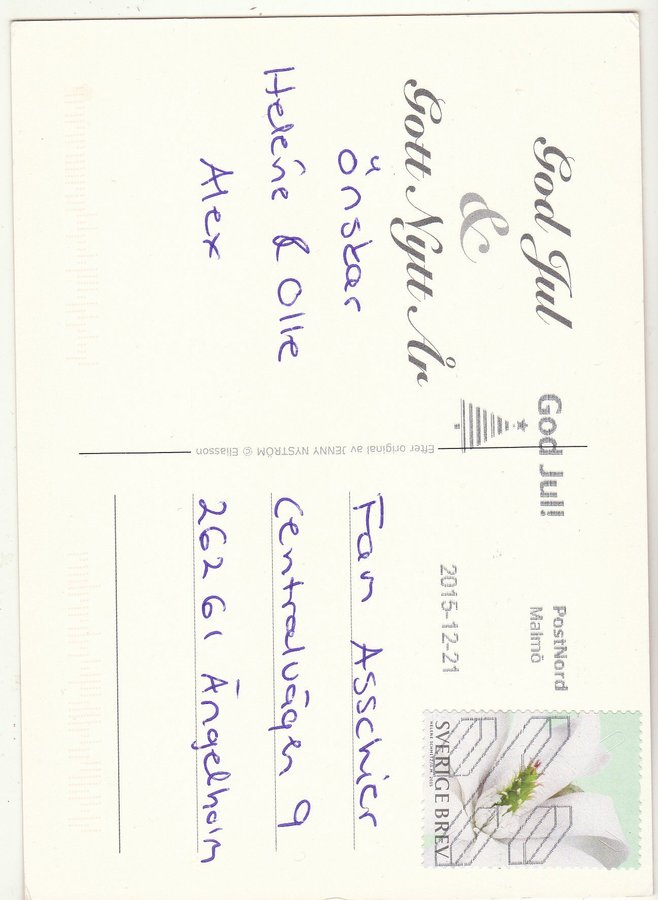 God Jul
&
Gott Nytt År
Önskar
Helene & Olle
Alex
Efter original av JENNY NYSTRÖM © Eliasson
God Jul!
PostNord
Malmö
2015-12-21
SVERIGE BREV
Fam Asschier
Centralvägen 9
26261 Ängelholm